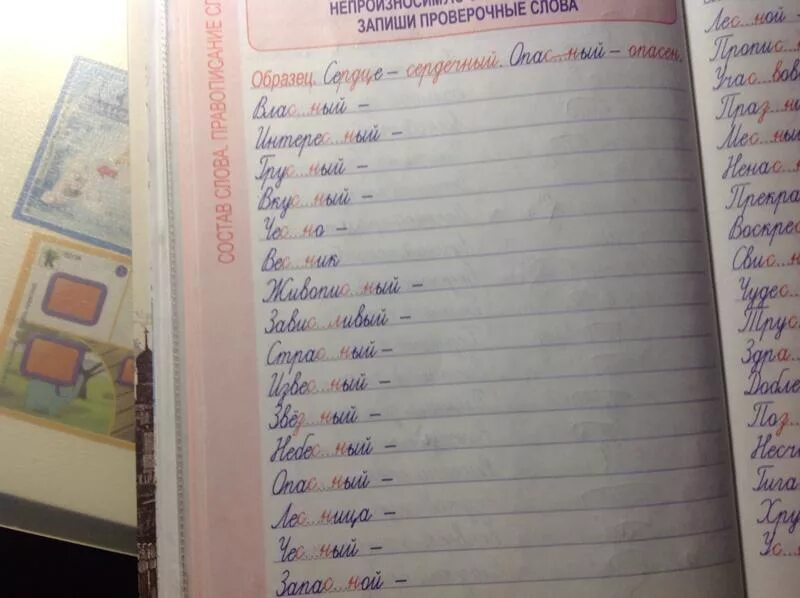 ЗАПИШИ ПРОВЕРОЧНЫЕ СЛОВА
СОСТАВ СЛОВА. ПРАВОПИСАНИЕ СЛ
Образец. Сердце – сердечный. Опас...ный – опасен.
Влас...ный –
Интерес...ный –
Грус...ный –
Вкус...ный –
Чес...но –
Вес...ник
Живопис...ный –
Завис...ливый –
Страс...ный –
Извес...ный –
Звёз...ный –
Небес...ный –
Опас...ный –
Лес...ница –
Чес...ный –
Запас...ной –
Лес...ной –
Пропис...
Учас...вов
Праз...ни
Мес...ны
Ненас...
Прекра
Воскрес
Свис...н
Чудес...
Трус...
Здра...
Добле
Поз...
Несч
Гига
Хру
Ус...